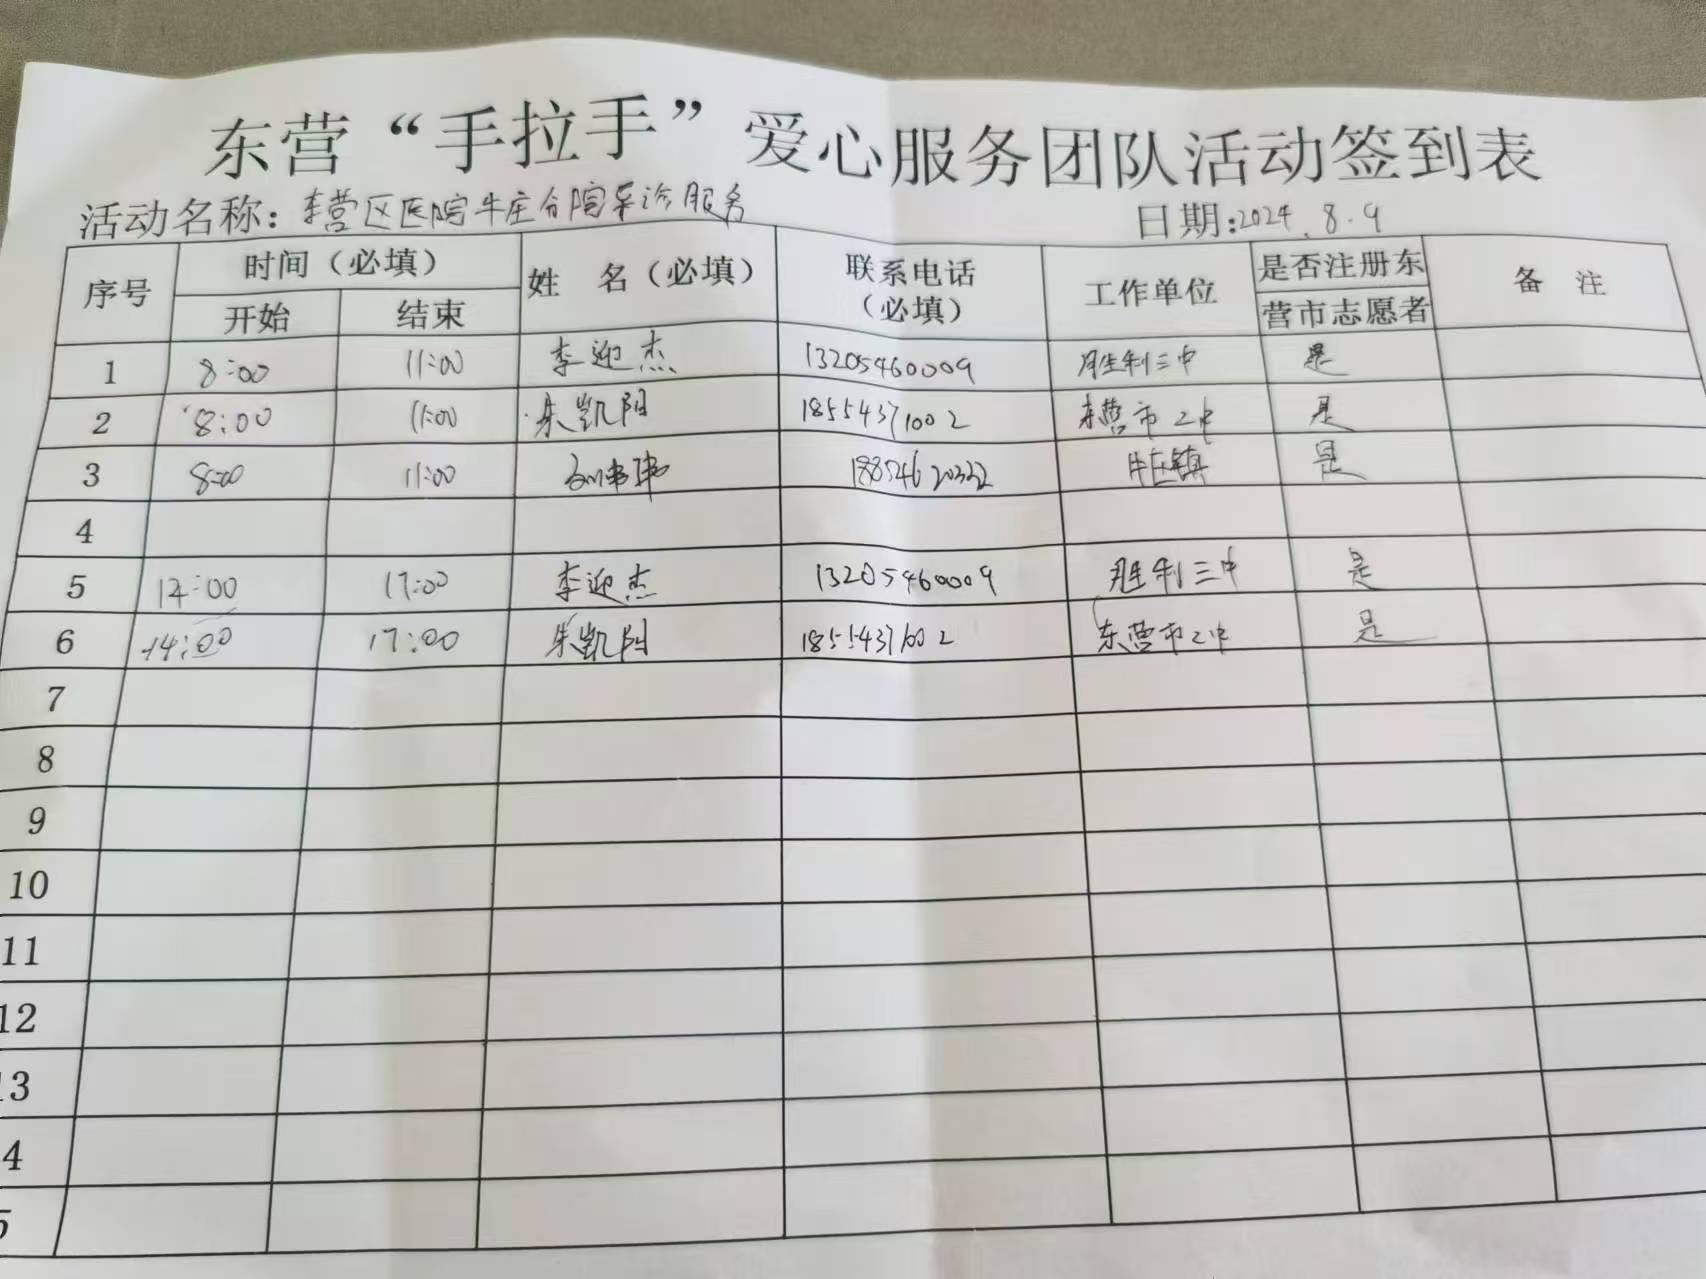 东营“手拉手”爱心服务团队活动签到表
活动名称：东营区医院牛庄分院导诊服务 日期：2024.8.9
序号 时间（必填） 姓 名（必填） 联系电话（必填） 工作单位 是否注册东营市志愿者 备 注
开始 结束
1 8:00 11:00 李迎杰 13205460009 胜利三中 是
2 8:00 11:00 朱凯阳 18554371002 东营市二中 是
3 8:00 11:00 18854620322 牛庄镇 是
4
5 14:00 17:00 李迎杰 13205460009 胜利三中 是
6 14:00 17:00 朱凯阳 18554371002 东营市二中 是
7
8
9
10
11
12
13
4
5